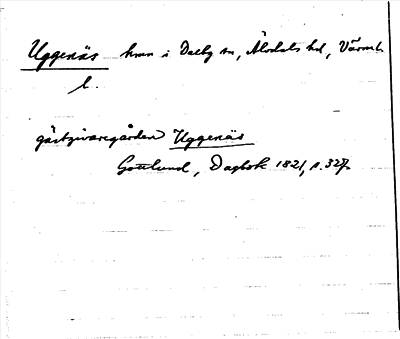 Uggenäs hmn i Dalby sn, Älvdals hd, Värml.
l.
gästgivaregården Uggenäs
Gottlund, Dagbok 1821, s. 327.